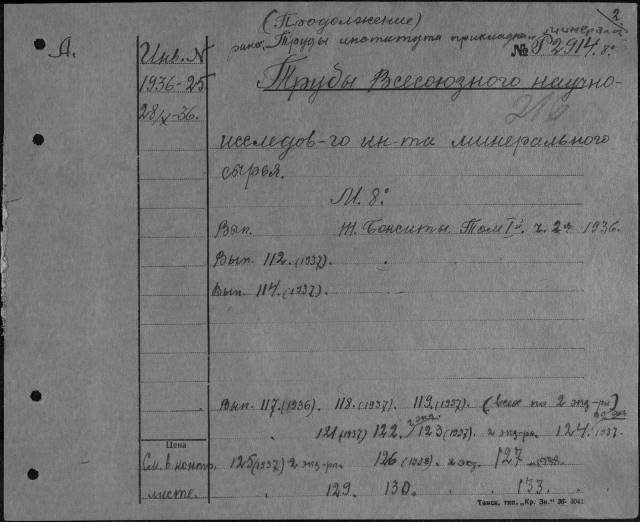 2.
(Продолжение)
ранѣе „Труды института прикладн. минерал."
Д.
Инв. №
№ Р2914. 8°
1936-25
Труды Всесоюзного научно-
28/X-36.
исследов-го ин-та минерального
сырья.
М. 8°
Вып. 111. Бокситы. Том I. ч. 2я 1936.
Вып. 112. (1937).
Вып. 114. (1937).
Вып. 117. (1936). 118. (1937). 119. (1937). (всех по 2 экз-ра)
121 (1937) 122. 2 экз. 123 (1937). 2 экз-ра. 124. 1937.
Цена
См. в контр. 125 (1937) 2 экз-ра. 126 (1938). 2 экз. 127 1938.
листе. 129. 130. 133.
Томск, тип. „Кр. Зн." 36- 3041